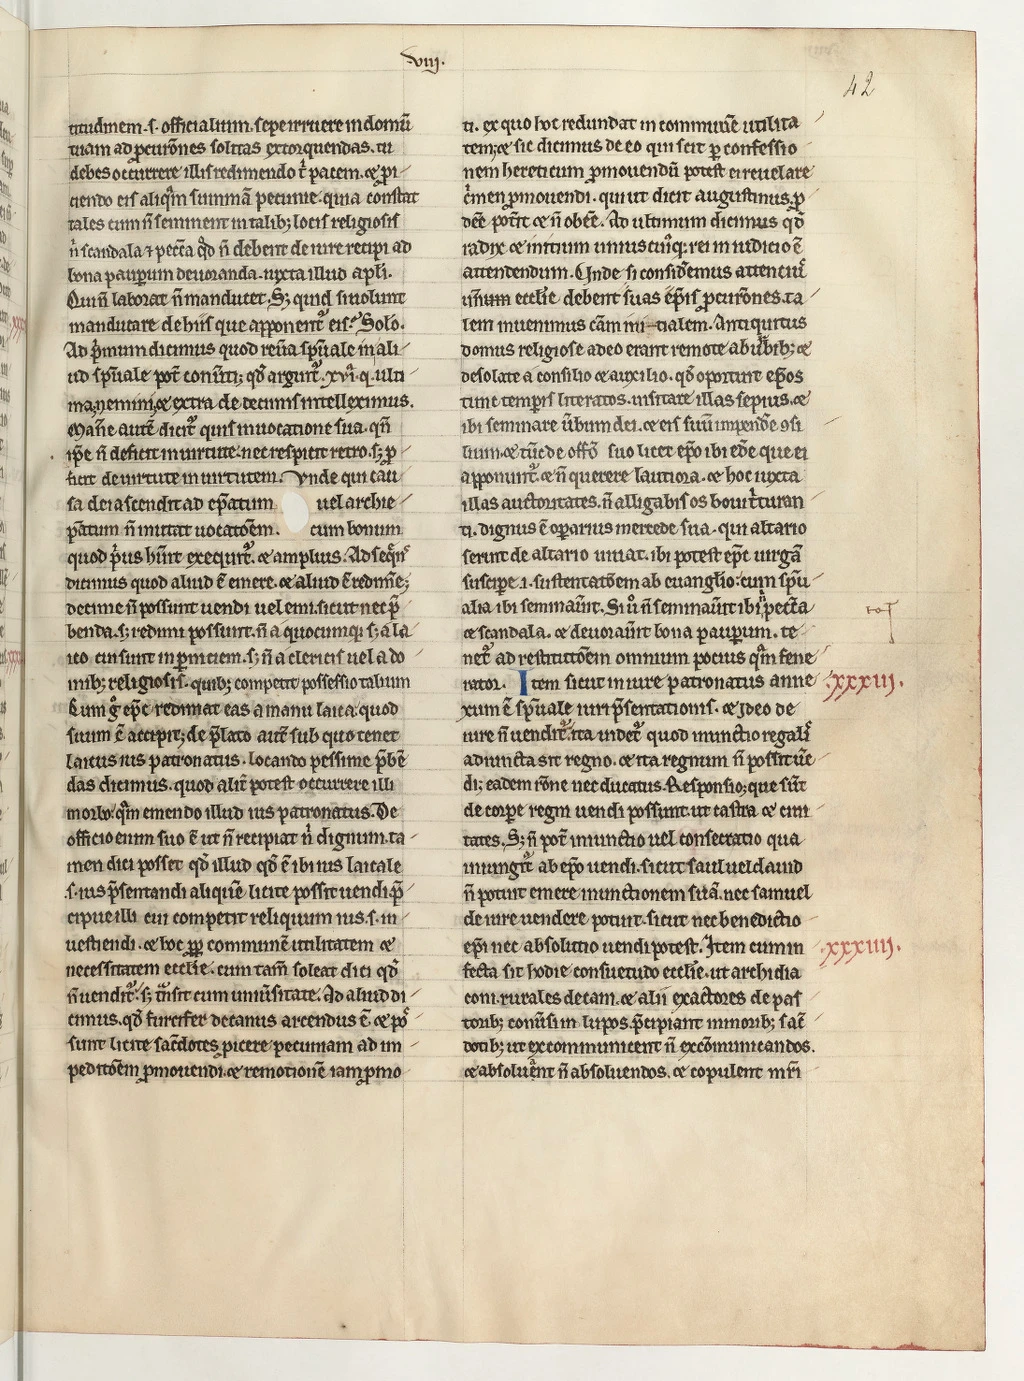 viij.
42
titudinem .s. officialium. sepe irruere in domū
tuam ad ꝓcurōnes solitas extorquendas. tu
debes occurrere illis redimendo t̄ pacem. ⁊ pi-
ciendo eis aliqͣm summā pecunie. quia constat
tales cum n̄ seminent in talibꝫ locis religiosis
n̄ scandala ⁊ pecc̄a qͦd n̄ debent de iure recipi ad
bona pauꝑum deuoranda. iuxta illud apl̄i.
Qui n̄ laborat n̄ manducet. Sꝫ quid si uolunt
manducare de hiis que apponentᷣ eis. Solō.
Ad p̄mum dicimus quod reūa sp̄uale in ali-
ud sp̄uale pot̄ conūti; qd̄ arguitᷣ. xvi. q. ulti-
ma; nemini; ⁊ extra de decimis intelleximus.
Mane autē dicitᷣ quis in uocatione sua. qn̄
ip̄e n̄ deficit in uirtute. nec respicit retro. sꝫ ꝓ
ficit de uirtute in uirtutem. Vnde qui cau-
sa dei ascendit ad ep̄atum uel archie-
p̄atum n̄ mutat uocatōem. cum bonum
quod p̄us hūit exequitᷣ. ⁊ amplius. Ad seqn̄s
dicimus quod aliud ē emere. ⁊ aliud ē redime;
decime n̄ possunt uendi uel emi. sicut nec p̄-
benda. sꝫ redimi possunt. n̄ a quocumqꝫ sꝫ a la-
ico cui sunt in ꝑniciem. sꝫ n̄ a clericis uel a do
mibꝫ religiosis. quibꝫ competit possessio talium
Cum g̊ ep̄c redimat eas a manu laica. quod
suum ē accipit; de p̄lato aut̄ sub quo tenet
laicus ius patronatus. locando pessime p̄bē-
das dicimus. quod alit̄ potest occurrere illi
morbo. qͣm emendo illud ius patronatus. De
officio enim suo ē ut n̄ recipiat n̄ dignum. ta-
men dici posset qd̄ illud qd̄ ē ibi ius laicale
.s. ius p̄sentandi aliquē licite possit uendi p̄-
cipue illi cui competit reliquum ius. s. in-
uestiendi. ⁊ hoc ꝓp̄ communē utilitatem ⁊
necessitatem ecclīe. cum tam̄ soleat dici qd̄
n̄ uenditᷣ. sꝫ tͣnsit cum uniūsitate. Ad aliud di-
cimus. qd̄ furcifer decanus arcendus ē. ⁊ pō-
sunt licite sac̄dotes ꝓicere pecuniam ad im-
peditōem ꝓmouendi. ⁊ remotionē iam ꝓmo
ti. ex quo hoc redundat in commūnē utilita-
tem; ⁊ sic dicimus de eo qui scit ꝑ confessio
nem hereticum ꝓmouendū potest ei reuelare
c̄men ꝓmouendi. qui ut dicit augustinus. ꝓ
dēē pot̄it ⁊ n̄ obēē. Ad ultimum dicimus qd̄
radix ⁊ initium uniuscuiꝰqꝫ rei in iudicio ē
attendendum. Vnde si consid̄emus attentiꝰ
unum ecclīe debent suas ep̄is ꝓcurōnes. ta-
lem inuenimus cām ini-tialem. Antiquitus
domus religiose adeo erant remote ab urbibꝫ ⁊
desolate a consilio ⁊ auxilio. qd̄ oportuit ep̄os
tunc temꝑis literatos. uisitare illas sepius. ⁊
ibi seminare ūbum dei. ⁊ eis suū impendēꝰ ꝯsi-
lium. ⁊ tūc de offō suo licet ep̄o ibi edē que ei
apponuntᷣ. ⁊ n̄ querere lautiora. ⁊ hoc iuxta
illas auctoritates. n̄ alligabis os boui t̄turan-
ti. dignus ē oꝑarius mercede sua. qui altario
seruit de altario uiuat. ibi potest ep̄c uirgā
suscipe .i. sustentatōem ab euanglio. cum sp̄u-
alia ibi seminaūit. Si ū n̄ seminaūit ibi n̄ pecc̄a
⁊ scandala. ⁊ deuoraūit bona pauꝑum. te-
netᷣ ad restitutōem omnium pocius qͣm fene-
rator. Item sicut in iure patronatus anne-
xum ē sp̄uale iuri p̄sentationis. ⁊ Ideo de
iure n̄ uenditᷣ. ita uidetᷣ quod munctio regalis
adiuncta sit regno. ⁊ ita regnum n̄ possit uē-
di; eadem rōne nec ducatus. Responsio; que sūt
de corꝑe regni uendi possunt. ut castra ⁊ ciui-
tates. Sꝫ n̄ pot̄ inunctio uel consecratio qua
inungitᷣ ab ep̄o uendi. sicut saul uel dauid
n̄ potuit emere inunctionem suā. nec samuel
de iure uendere potuit. sicut nec benedictio
ep̄i nec absolutio uendi potest. Item cum in-
fecta sit hodie consuetudo ecclīe. ut archidia-
coni. rurales decani. ⁊ alii exactores de pas-
toribꝫ conūsi in lupos. p̄cipiant minoribꝫ sac̄-
dotibꝫ ut excommunicent n̄ excōmunicandos.
⁊ absoluant n̄ absoluendos. ⁊ copulent mr̄i-
xxxiij.
xxxiiij.